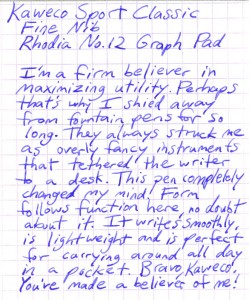 Kaweco Sport Classic
Fine Nib
Rhodia No.12 Graph Pad
I'm a firm believer in
maximizing utility. Perhaps
that's why I shied away
from fountain pens for so
long. They always struck me
as overly fancy instruments
that tethered the writer
to a desk. This pen completely
changed my mind. Form
follows function here, no doubt
about it. It writes smoothly,
is lightweight and is perfect
for carrying around all day
in a pocket. Bravo, Kaweco.
You've made a believer of me!